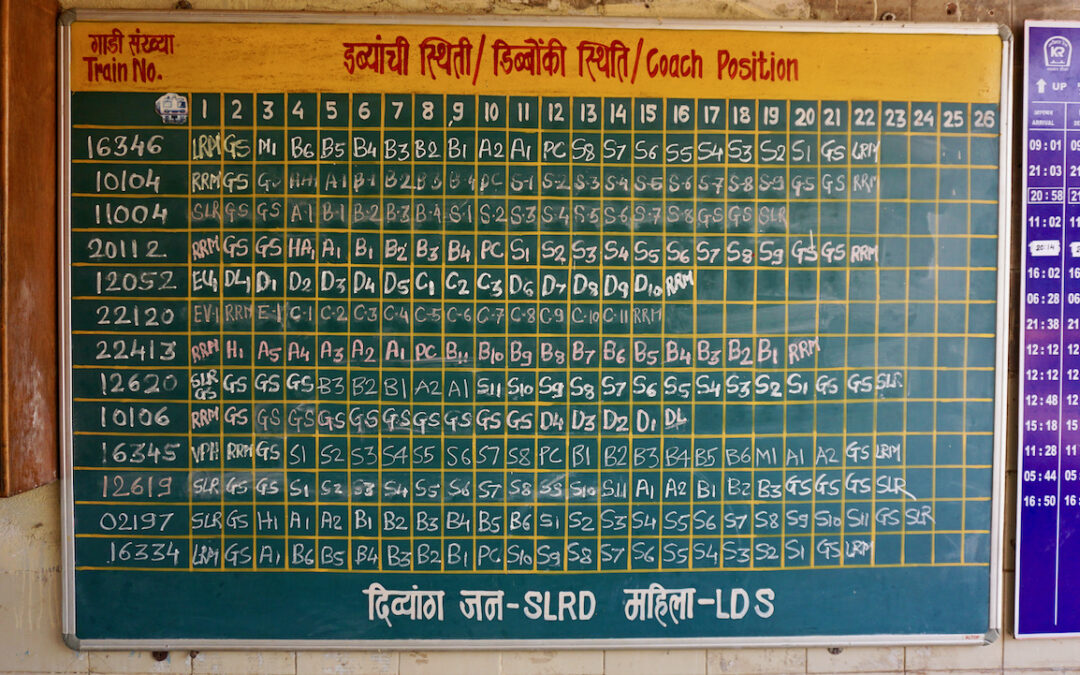 गाडी संख्या
Train No.
डब्यांची स्थिती / डिब्बोंकी स्थिति / Coach Position
1 2 3 4 5 6 7 8 9 10 11 12 13 14 15 16 17 18 19 20 21 22 23 24 25 26
16346 LRM GS M1 B6 B5 B4 B3 B2 B1 A2 A1 PC S8 S7 S6 S5 S4 S3 S2 S1 GS LRM
10104 RRM GS HA1 A-1 B-1 B-2 B-3 B-4 PC S-1 S-2 S-3 S-4 S-5 S-6 S-7 S-8 S-9 GS GS RRM
11004 SLR GS GS A-1 B-1 B-2 B-3 B-4 S-1 S-2 S-3 S-4 S-5 S-6 S-7 S-8 GS GS SLR
20112 RRM GS GS HA1 A1 B1 B2 B3 B4 PC S1 S2 S3 S4 S5 S6 S7 S8 S9 GS GS RRM
12052 DL1 D1 D2 D3 D4 D5 C1 C2 C3 D6 D7 D8 D9 D10 RRM
22120 EV-1 RRM E-1 C-1 C-2 C-3 C-4 C-5 C-6 C-7 C-8 C-9 C-10 C-11 RRM
22413 RRM H1 A5 A4 A3 A2 A1 PC B11 B10 B9 B8 B7 B6 B5 B4 B3 B2 B1 RRM
12620 SLR GS GS GS GS B3 B2 B1 A2 A1 S11 S10 S9 S8 S7 S6 S5 S4 S3 S2 S1 GS GS SLR
10106 RRM GS GS GS GS GS GS GS GS GS GS D4 D3 D2 D1 DL
16345 VPH RRM GS S1 S2 S3 S4 S5 S6 S7 S8 PC B1 B2 B3 B4 B5 B6 M1 A1 A2 GS LRM
12619 SLR GS GS S1 S2 S3 S4 S5 S6 S7 S8 S9 S10 S11 A1 A2 B1 B2 B3 GS GS GS SLR
02197 SLR GS H1 A1 A2 B1 B2 B3 B4 B5 B6 S1 S2 S3 S4 S5 S6 S7 S8 S9 S10 S11 GS SLR
16334 LRM GS A1 B6 B5 B4 B3 B2 B1 PC S10 S9 S8 S7 S6 S5 S4 S3 S2 S1 GS LRM
दिव्यांग जन-SLRD महिला-LDS
KR
UP
ARRIVAL
09:01
21:03
20:58
11:02
20:14
16:02
06:28
21:38
12:12
12:12
12:48
15:18
11:28
05:44
16:50